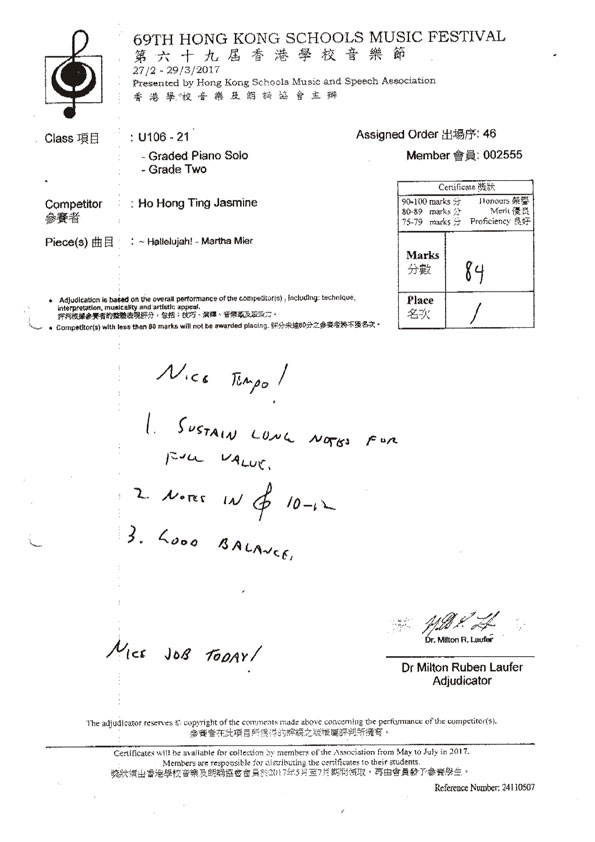 69TH HONG KONG SCHOOLS MUSIC FESTIVAL
第六十九屆香港學校音樂節
27/2 - 29/3/2017
Presented by Hong Kong Schools Music and Speech Association
香港學校音樂及朗誦協會主辦
Class 項目 : U106 - 21
Assigned Order 出場序: 46
- Graded Piano Solo
Member 會員: 002555
- Grade Two
Competitor : Ho Hong Ting Jasmine
參賽者
Certificate 獎狀
90-100 marks 分 Honours 榮譽
80-89 marks 分 Merit 優良
75-79 marks 分 Proficiency 良好
Piece(s) 曲目 : ~ Hallelujah! - Martha Mier
Marks 84
分數
Place /
名次
• Adjudication is based on the overall performance of the competitor(s), including: technique,
interpretation, musicality and artistic appeal.
評判根據參賽者的整體表現評分，包括：技巧、演繹、音樂感及
• Competitor(s) with less than 80 marks will not be awarded placing. 評分未達80分之參賽者將不獲名次。
NICE TEMPO!
1. SUSTAIN LONG NOTES FOR
FULL VALUE.
2. NOTES IN 𝄞 10-12
3. GOOD BALANCE.
NICE JOB TODAY!
Dr. Milton R. Laufer
Dr Milton Ruben Laufer
Adjudicator
The adjudicator reserves © copyright of the comments made above concerning the performance of the competitor(s).
參賽者在此項目所獲得的評語之版權屬評判所擁有。
Certificates will be available for collection by members of the Association from May to July in 2017.
Members are responsible for distributing the certificates to their students.
獎狀須由香港學校音樂及朗誦協會會員於2017年5月至7月期間領取，再由會員發予參賽學生。
Reference Number: 24110507